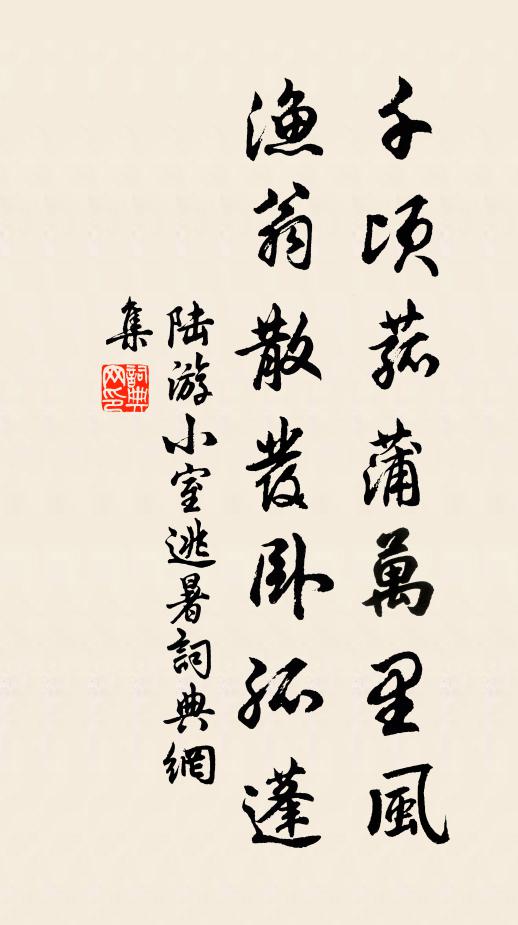 千頃菰蒲萬里風
漁翁散發卧孤蓬
陸游小室逃暑詞典網
集
詞典
网印